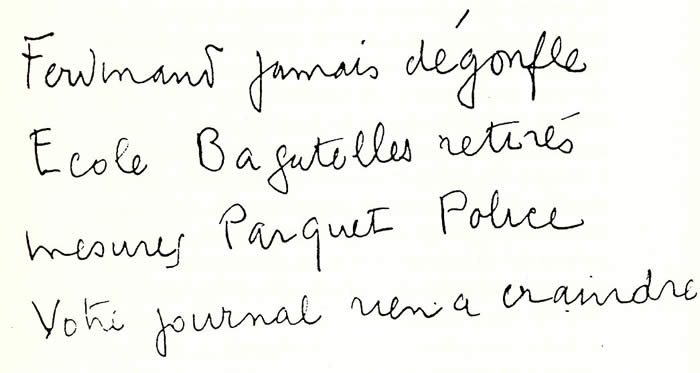 Ferdinand jamais dégonfle
Ecole Bagatelles retirés
mesures Parquet Police
Votre journal rien a craindre